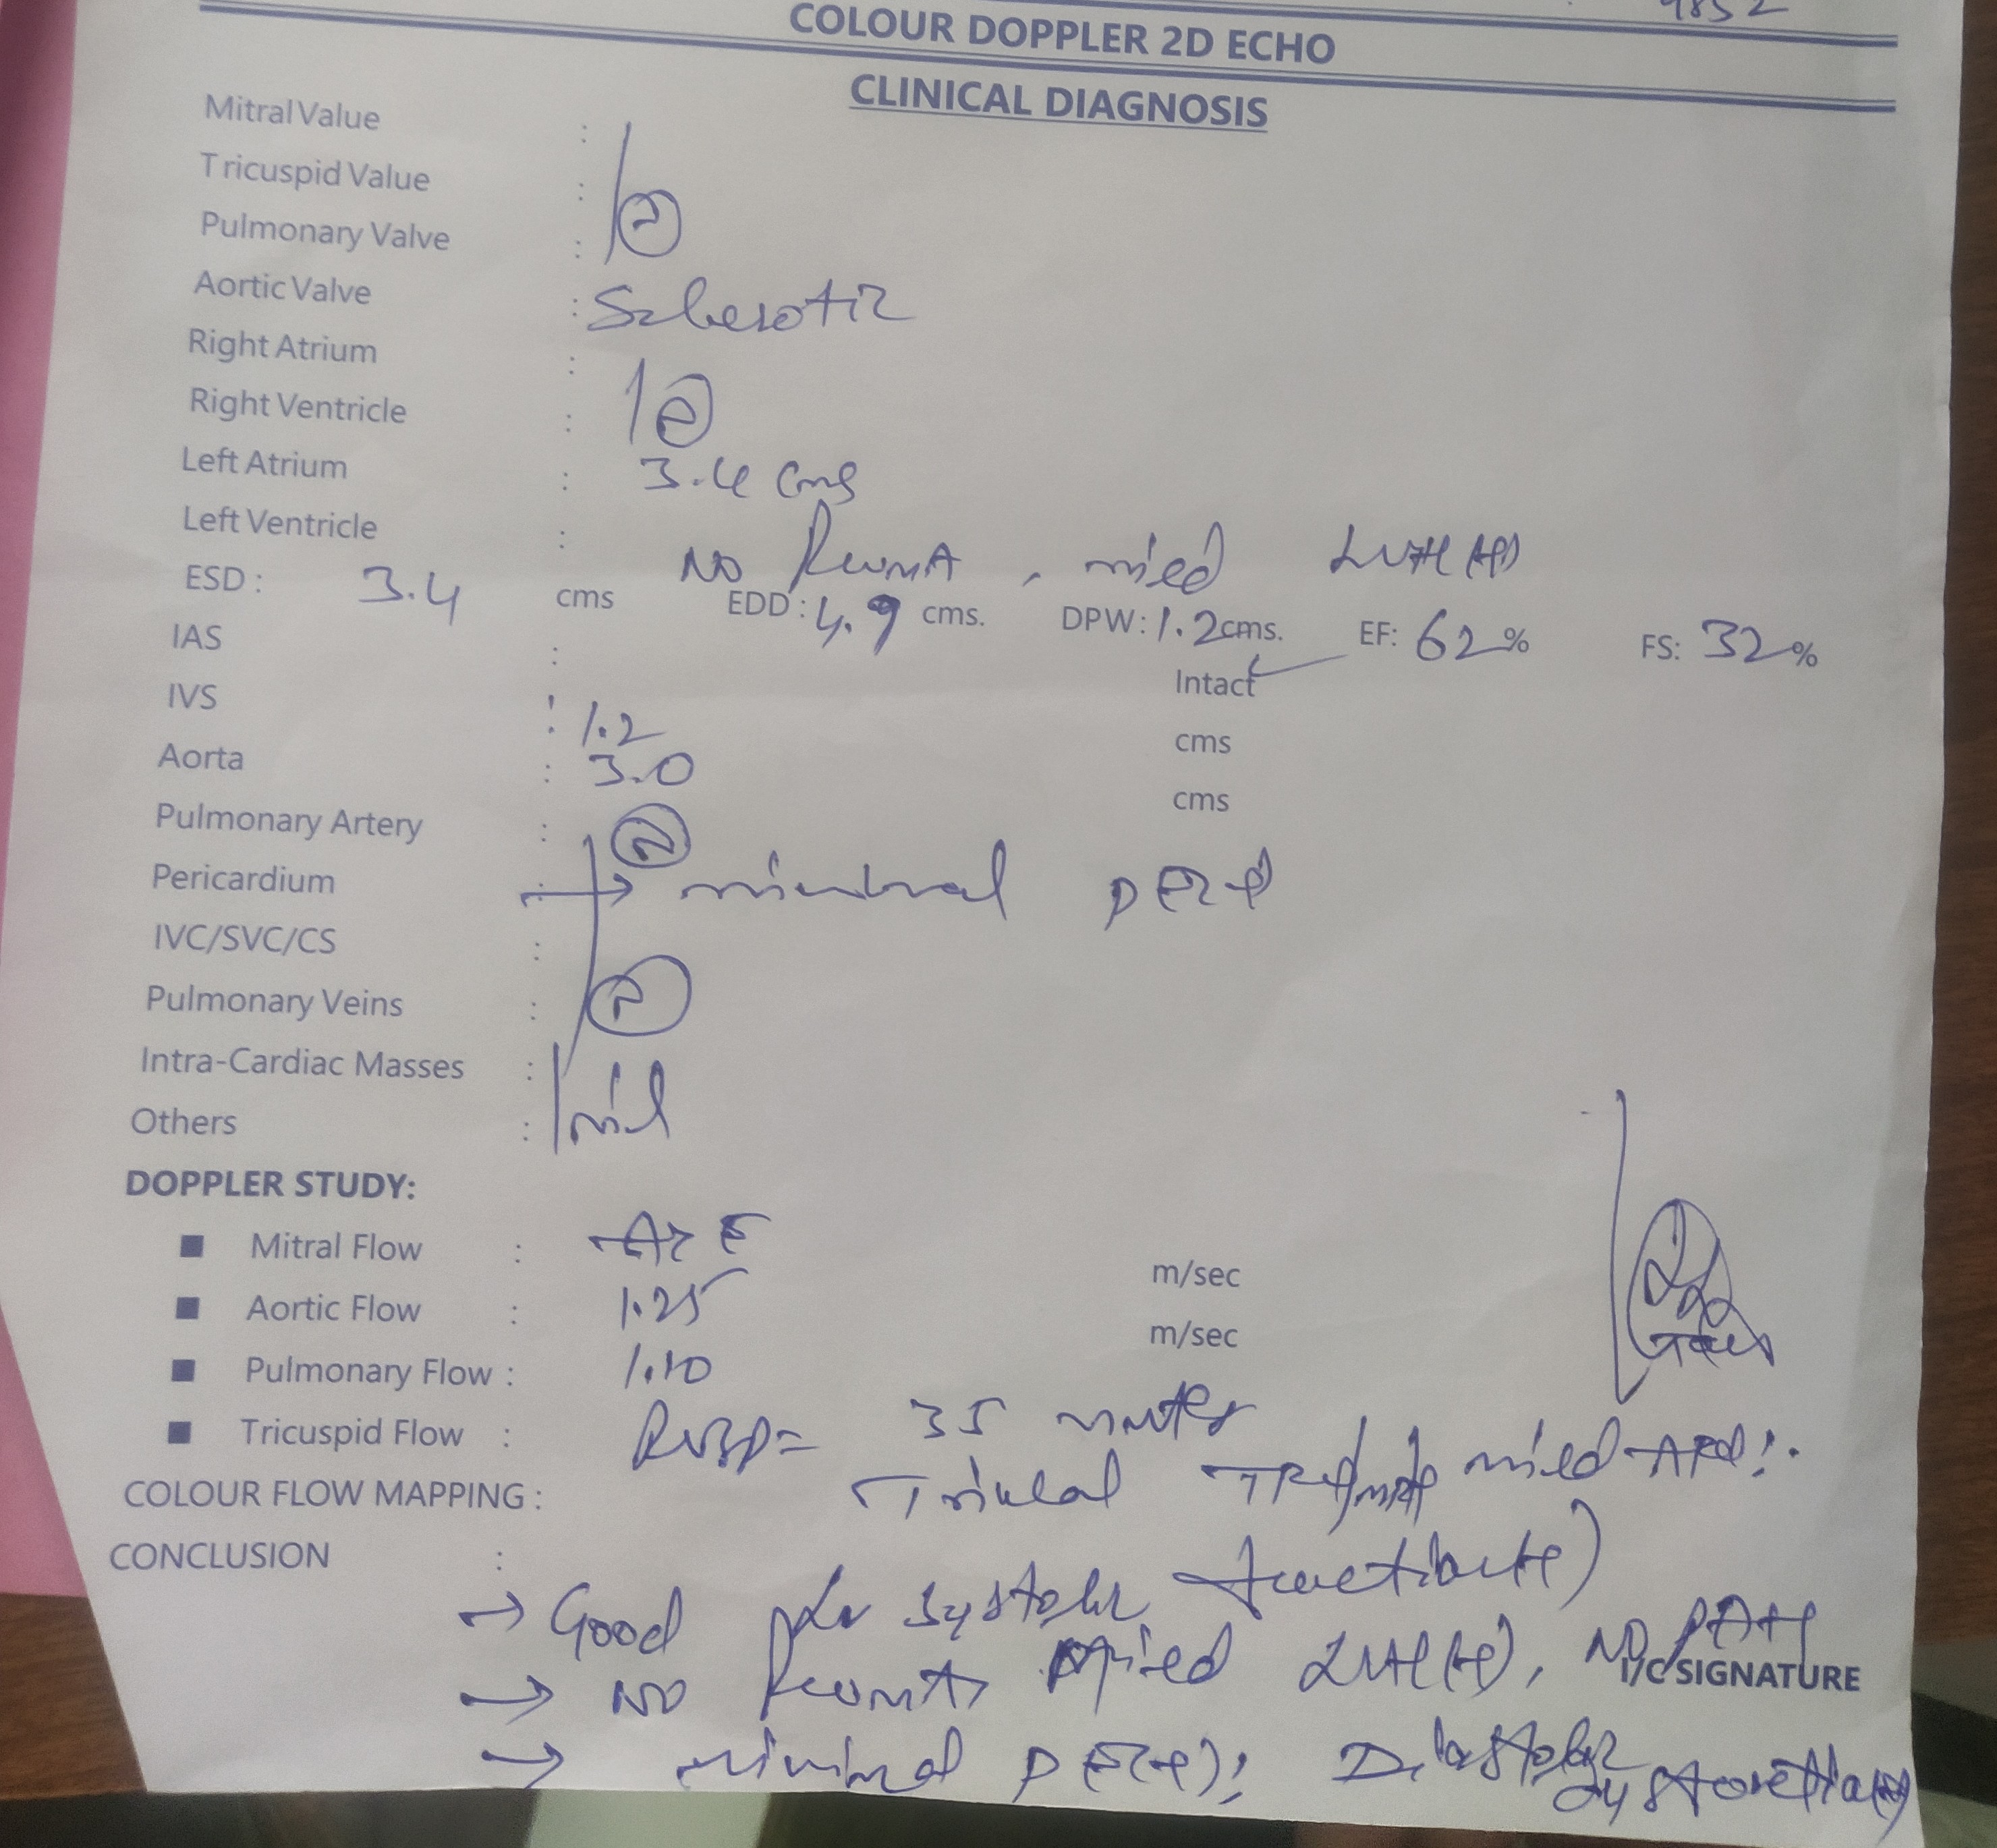 9852
COLOUR DOPPLER 2D ECHO
CLINICAL DIAGNOSIS
Mitral Value :
Tricuspid Value :
Pulmonary Valve : N
Aortic Valve : Sclerotic
Right Atrium :
Right Ventricle : N
Left Atrium : 3.4 cms
Left Ventricle : NO RWMA, mild LVH (+)
ESD : 3.4 cms EDD : 4.9 cms. DPW : 1.2 cms. EF: 62 % FS: 32 %
IAS : Intact ✓
IVS : 1.2 cms
Aorta : 3.0 cms
Pulmonary Artery : N
Pericardium : → minimal PE (+)
IVC/SVC/CS :
Pulmonary Veins : N
Intra-Cardiac Masses :
Others : nil
DOPPLER STUDY:
■ Mitral Flow : A > E m/sec
■ Aortic Flow : 1.25 m/sec
■ Pulmonary Flow : 1.10
■ Tricuspid Flow : RVSP = 35 mmHg
COLOUR FLOW MAPPING : Trivial TR (+) / MR (+) mild AR (+)
CONCLUSION :
→ Good LV systolic function (+)
→ NO RWMA, mild LVH (+), NO PAH
I/C SIGNATURE
→ minimal PE (+); Diastolic dysfunction (+)